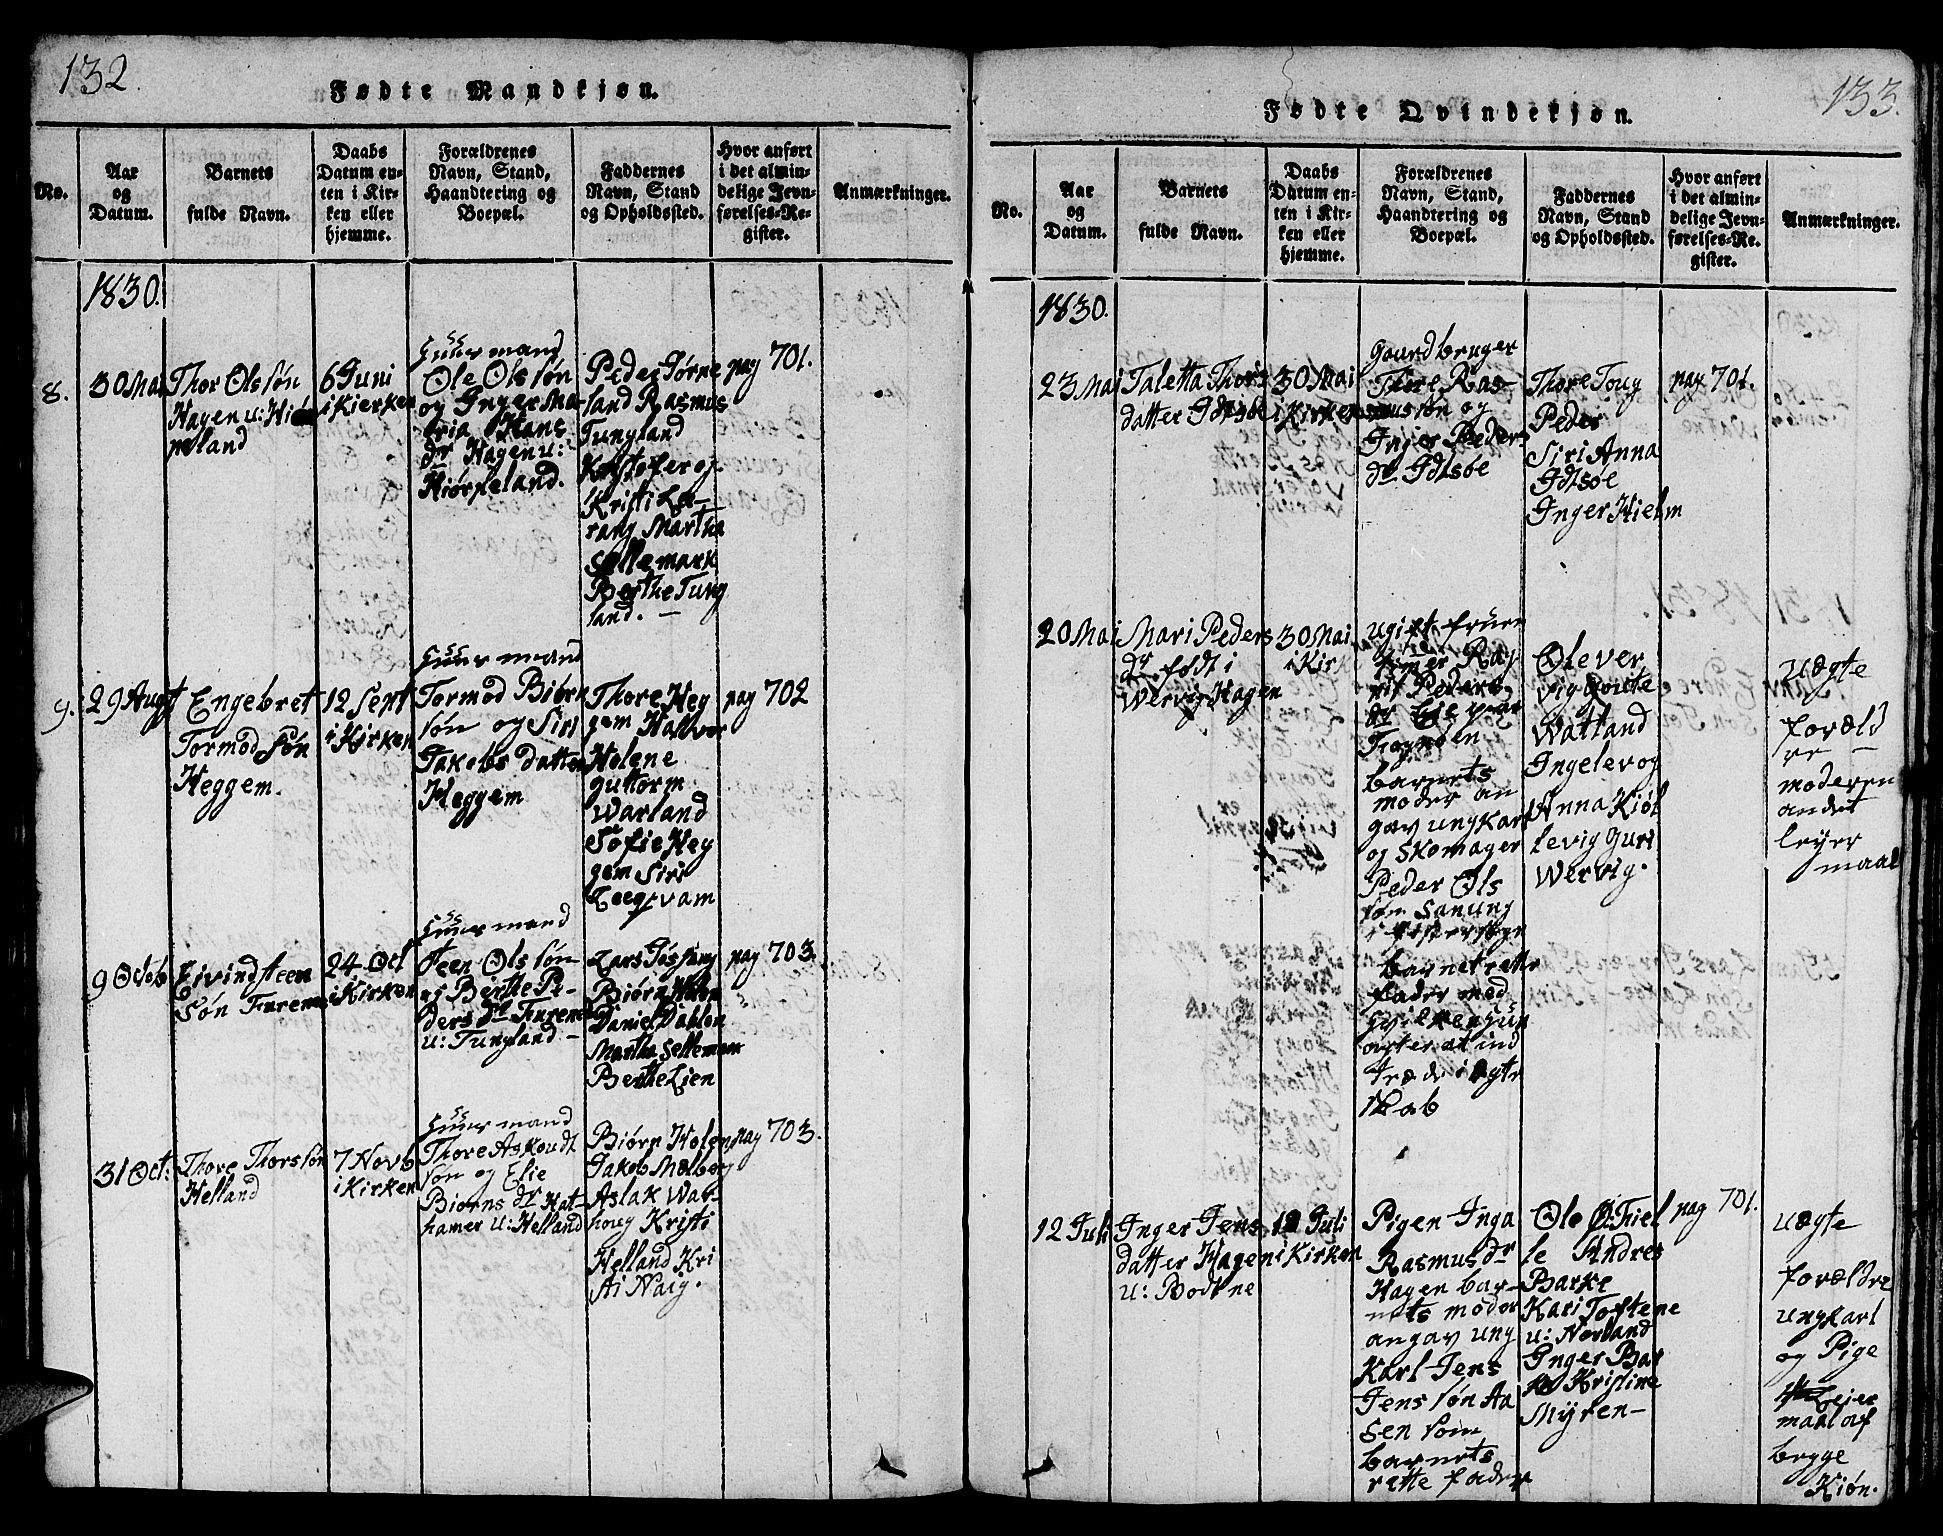 132.
Fødte Mandkjøn.
No.
Aar
og
Datum.
Barnets
fulde Navn.
Daabs
Datum en-
ten i Kir-
ken eller
hjemme.
Forældrenes
Navn, Stand,
Haandtering og
Boepæl.
Faddernes
Navn, Stand
og Opholdssted.
Hvor anført
i det almin-
delige Jevn-
førelses-Re-
gister.
Anmærkninger.
1830.
8.
30 Mai
Thor Olssøn
Hagen u: Hiør
peland
6 Juni
i Kierken
Huusmand
Ole Olssøn
og Inger Ma-
ria Hans
dr Hagen u:
Hiørpeland.
Peder Jørne
land Rasmus
Tungland
Kristi Le-
rang Martha
Sellemark
Berthe Tung
land. —
pag 701.
9.
29 Augt
Engebret
Tormodsøn
Heggem.
12 Sept
i Kirken
Huusmand
Tormod Biørn
søn og Siri
Jakobs datter
Heggem
Thore Heg
gem Halvor
Helene
guttorm
Warland
Sofie Heg
gem Siri
pag 702
9 Octob
Eivind Steen
søn Furene
24 Oct
i Kirken
Huusmand
Steen Olssøn
og Berthe Pe-
ders dr Furene
u: Tungland —
Lars Jøssang
Biørn Holen
Daniel Dahlen
Martha Sellemann
Berthe Lien
pag 703.
31 Oct.
Thore Thorssøn
Helland
7 Novb
i Kirken
Huusmand
Thore Askoudt
søn og Elie
Biørns dr Hat-
hamer u: Helland
Biørn Holen
Jakob Mælberg
Aslak War-
houg Kristi
Helland Kri
sti Naig.
pag 703.
133.
Fødte Qvindekjøn.
No.
Aar
og
Datum.
Barnets
fulde Navn.
Daabs
Datum en-
ten i Kir-
ken eller
hjemme.
Forældrenes
Navn, Stand,
Haandtering og
Boepæl.
Faddernes
Navn, Stand
og Opholdssted.
Hvor anført
i det almin-
delige Jevn-
førelses-Re-
gister.
Anmærkninger.
1830.
23 Mai
Taletta Thors
datter Idtsøe
30 Mai
i Kirken
Gaardbruger
Thore Ras-
mussøn og
Inger Peder
dr Idtsøe
Thore Toug
Peder
Siri Anna
Idtsøe
Inger Hielm
pag 701.
20 Mai
Mari Peders
dr født i
Wervig Hagen
30 Mai
i Kirk
ugift
barnets
moder an
gav ungkarl
og Skomager
Peder Ols
søn
barnet rette
fader med
agter at ind
træde i Ægte
skab
Ole ver
vig
Watland
Ingelev og
Anna Kiøl
levig Guri
Wervig.
uægte
foræld
re —
moderen
andet
leyer
maal
12 Juli
Inger Jens
datter Hagen
u: Bodtne
12 Juli
i Kirken
Pigen Inga
Rasmus dr
Hagen bar-
nets moder
angav ung
Karl Jens
Jenssøn Aa
sen som
barnets
rette fader
Ole Ø: Fiel
le Andres
Barke
Kari Toftene
u: Nørland
Inger Bar
ke Kristine
Myren —
pag 701.
uægte
forældre
ungkarl
og Pige
Leier
maal af
begge
Kiøn.